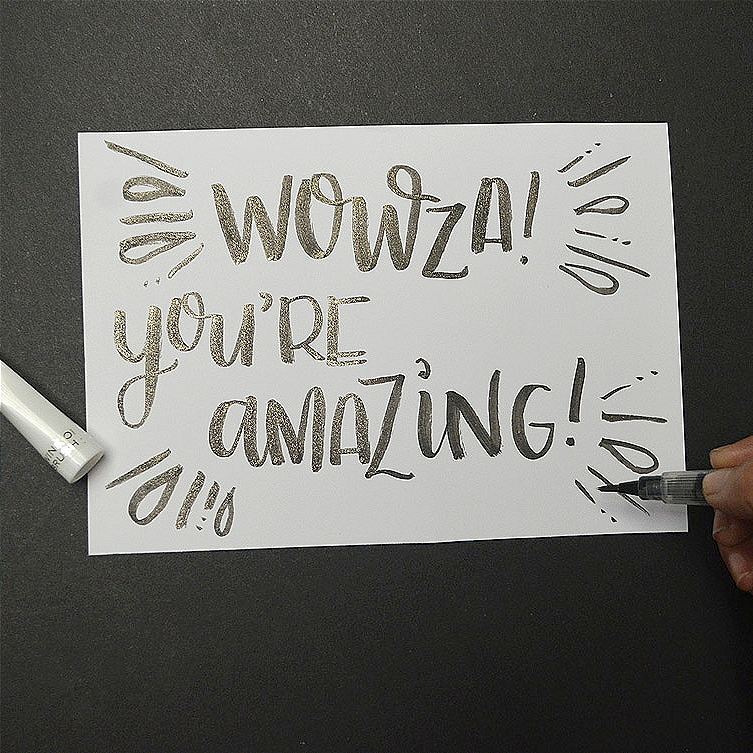 WOWZA!
you'RE
aMAZiNG!